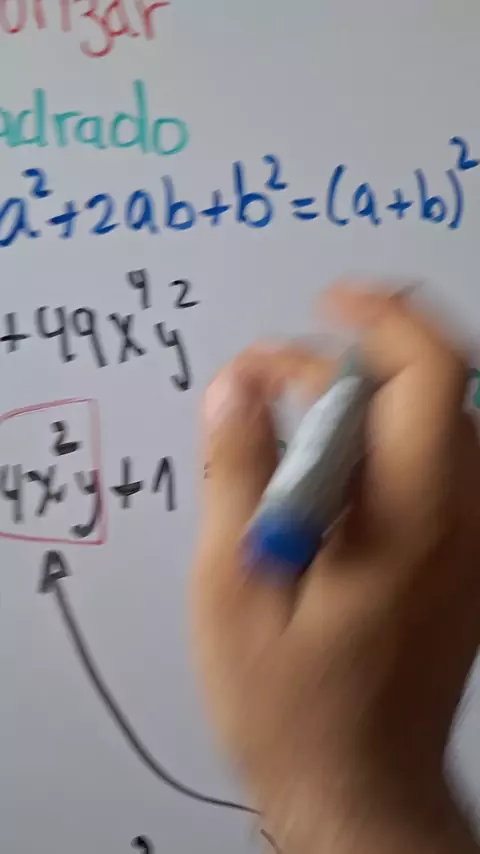 orizar
adrado
a²+2ab+b²=(a+b)²
+49x⁴y²
4x²y+1